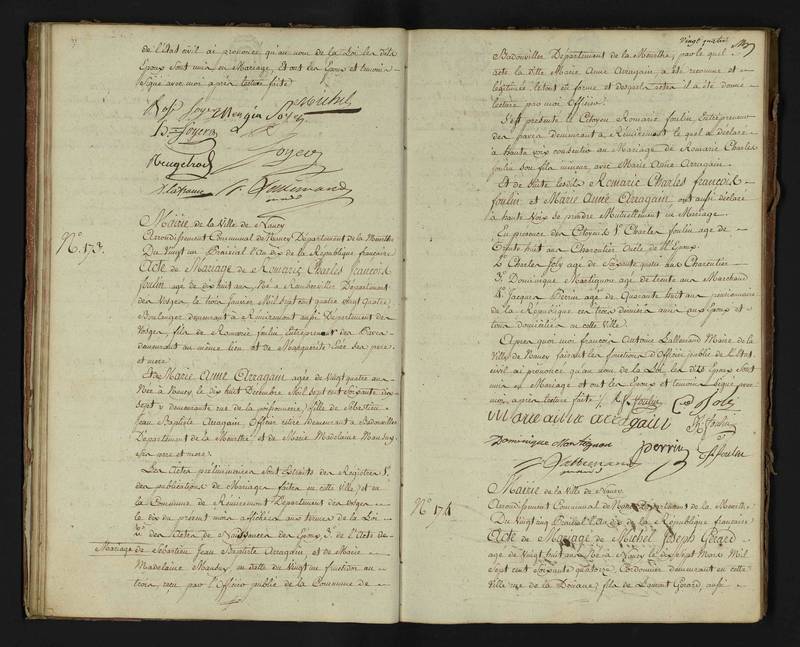 de l'Etat civil ai prononcé qu'au nom de la Loi les dits
Epoux sont unis en Mariage, Et ont les Epoux et temoins
signé avec moi après lecture faite
Nos Soyer Mengin Soyer Michel
Soyer
Soyer
Lafrance
Lallemand
N°. 173.
Mairie de la Ville de Nancy
Arrondissement Communal de Nancy Département de la Meurthe
Du Vingt un Prairial l'An dix de la République française
Acte de Mariage de Romaric Charles françois
foulin age de dix huit ans Né à Rambervillers Département
des Vosges le trois Janvier Mil sept cent quatre vingt quatre
Boulanger demeurant à Rémiremont aussi Département des
Vosges, fils de Romaric foulin, Entrepreneur des Pavés
demeurant au même lieu et de Marguerite ses pere
et mere
Et de Marie Anne Arragain agée de Vingt quatre ans
Née à Nancy, le dix huit Decembre Mil sept cent soixante dix
sept, demeurante rue de la poissonnerie, fille de Sébastien
Jean Baptiste Arragain, Officier retiré demeurant à Badonviller
Département de la Meurthe, et de Marie Madelaine Mausuy
ses pere et mere
Les Actes préliminaires sont Extraits des Registres 1°.
des publications de Mariages faites en cette Ville, et en
la Commune de Rémiremont Département des Vosges
le dix du présent mois affichées aux termes de la Loi
2°. des Actes de Naissances des Epoux, 3°. de l'Acte de
Mariage de Sébastien Jean Baptiste Arragain, et de Marie
Madelaine Mausuy en datte du Vingt un
trois, reçu par l'Officier public de la Commune de
Vingt quatre
Badonviller Département de la Meurthe, par le quel
acte la ditte Marie Anne Arragain, a été reconnue et
légitimée, le tout en forme et desquels actes il a été donné
lecture par moi Officier
S'est présenté le Citoyen Romaric foulin, Entrepreneur
des pavés demeurant à Rémiremont le quel a déclaré
à haute voix consentir au Mariage de Romaric Charles
foulin son fils mineur avec Marie Anne Arragain
Et de suite lesdits Romaric Charles françois
foulin et Marie Anne Arragain, ont aussi déclaré
à haute Voix se prendre Mutuellement en Mariage
En présence des Citoyens 1°. Charles foulin age de
trente huit ans Charcutier Oncle de l'Epoux
2°. Charles Joly age de Soixante quatre ans Charcutier
3°. Dominique Martignon age de trente ans Marchand
4°. Jacques Perrin age de Quarante huit ans pensionnaire
de la République ces trois derniers amis aux Epoux et
tous domiciliés en cette Ville
Après quoi moi françois Antoine Lallemand Maire de la
Ville de Nancy faisant les fonctions d'Officier public de l'Etat
civil ai prononcé qu'au nom de la Loi, les dits Epoux sont
unis en Mariage et ont les Epoux et temoins signé avec
moi, après lecture faite /. R. foulin C Joly
Marie anne aragain R. foulin
Dominique Martignon perrin foulin
Lallemand
N°. 174
Mairie de la Ville de Nancy
Arrondissement Communal de Nancy Département de la Meurthe
Du Vingt cinq Prairial l'An dix de la République francaise
Acte de Mariage de Michel Joseph Gerard
age de Vingt huit ans Né à Nancy le dix sept Mars Mil
sept cent soixante quatorze, Cordonnier demeurant en cette
Ville rue de la Douane, fils de Laurent Gerard, aussi